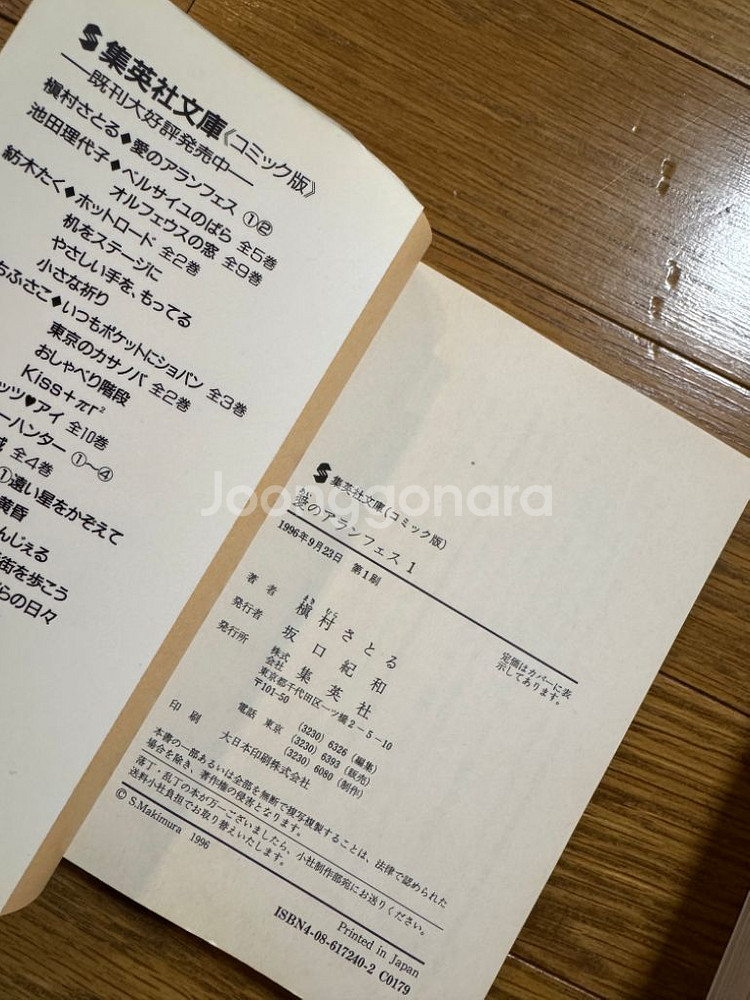 集英社文庫《コミック版》
―既刊大好評発売中―
槇村さとる◆愛のアランフェス ①②
池田理代子◆ベルサイユのばら 全5巻
オルフェウスの窓 全9巻
紡木たく◆ホットロード 全2巻
机をステージに
やさしい手を、もってる
小さな祈り
ちふさこ◆いつもポケットにショパン 全3巻
東京のカサノバ 全2巻
おしゃべり階段
Kiss+πr²
ッツ♥アイ 全10巻
ーハンター ①〜④
全4巻
①遠い星をかぞえて
黄昏
んじぇる
街を歩こう
らの日々
Joonggonara
集英社文庫(コミック版)
愛のアランフェス 1
1996年9月23日 第1刷
定価はカバーに表
示してあります。
著者 槇村さとる
発行者 坂口紀和
発行所 株式会社 集英社
東京都千代田区一ツ橋2-5-10
〒101-50
電話 東京 (3230) 6326 (編集)
(3230) 6393 (販売)
(3230) 6080 (制作)
印刷 大日本印刷株式会社
本書の一部あるいは全部を無断で複写複製することは、法律で認められた
場合を除き、著作権の侵害となります。
落丁・乱丁の本が万一ございましたら、小社制作部宛にお送りください。
送料小社負担でお取り替えいたします。
© S.Makimura 1996
Printed in Japan
ISBN4-08-617240-2 C0179